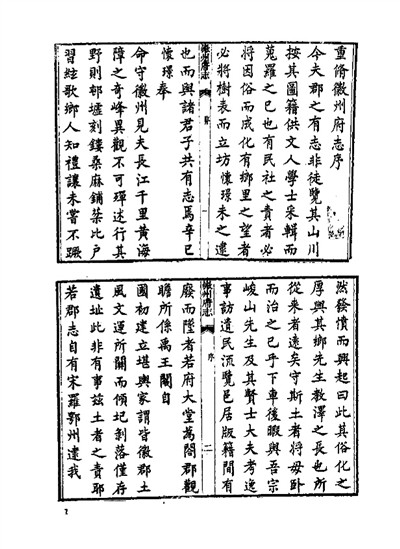 重脩徽州府志序
今夫郡之有志非徒覽其山川
按其圖籍供文人學士采輯而
蒐羅之已也有民社之責者必
將因俗而成化有鄉里之望者
必將樹表而立坊懷璟未之逮
徽州府志 序 一
也而與諸君子共有志焉辛巳
懷璟奉
命守徽州見夫長江千里黃海
障之奇峰異觀不可殫述行其
野則邨墟刻鏤桑麻鋪菜比戶
習絃歌鄉人知禮讓未嘗不蹶
然發憤而興起曰此其俗化之
厚與其鄉先生教澤之長也所
從來者遠矣守斯土者將毋卧
而治之已乎下車後暇與吾宗
峻山先生及其賢士大夫考逸
事訪遺民流覽邑居版籍間有
徽州府志 序 二
廢而墜者若府大堂為閤郡觀
瞻所係禹王閣自
國初建立堪輿家謂皆徽郡土
風文運所關而傾圮剝落僅存
遺址此非有事兹土者之責耶
若郡志自有宋羅鄂州遺我
1